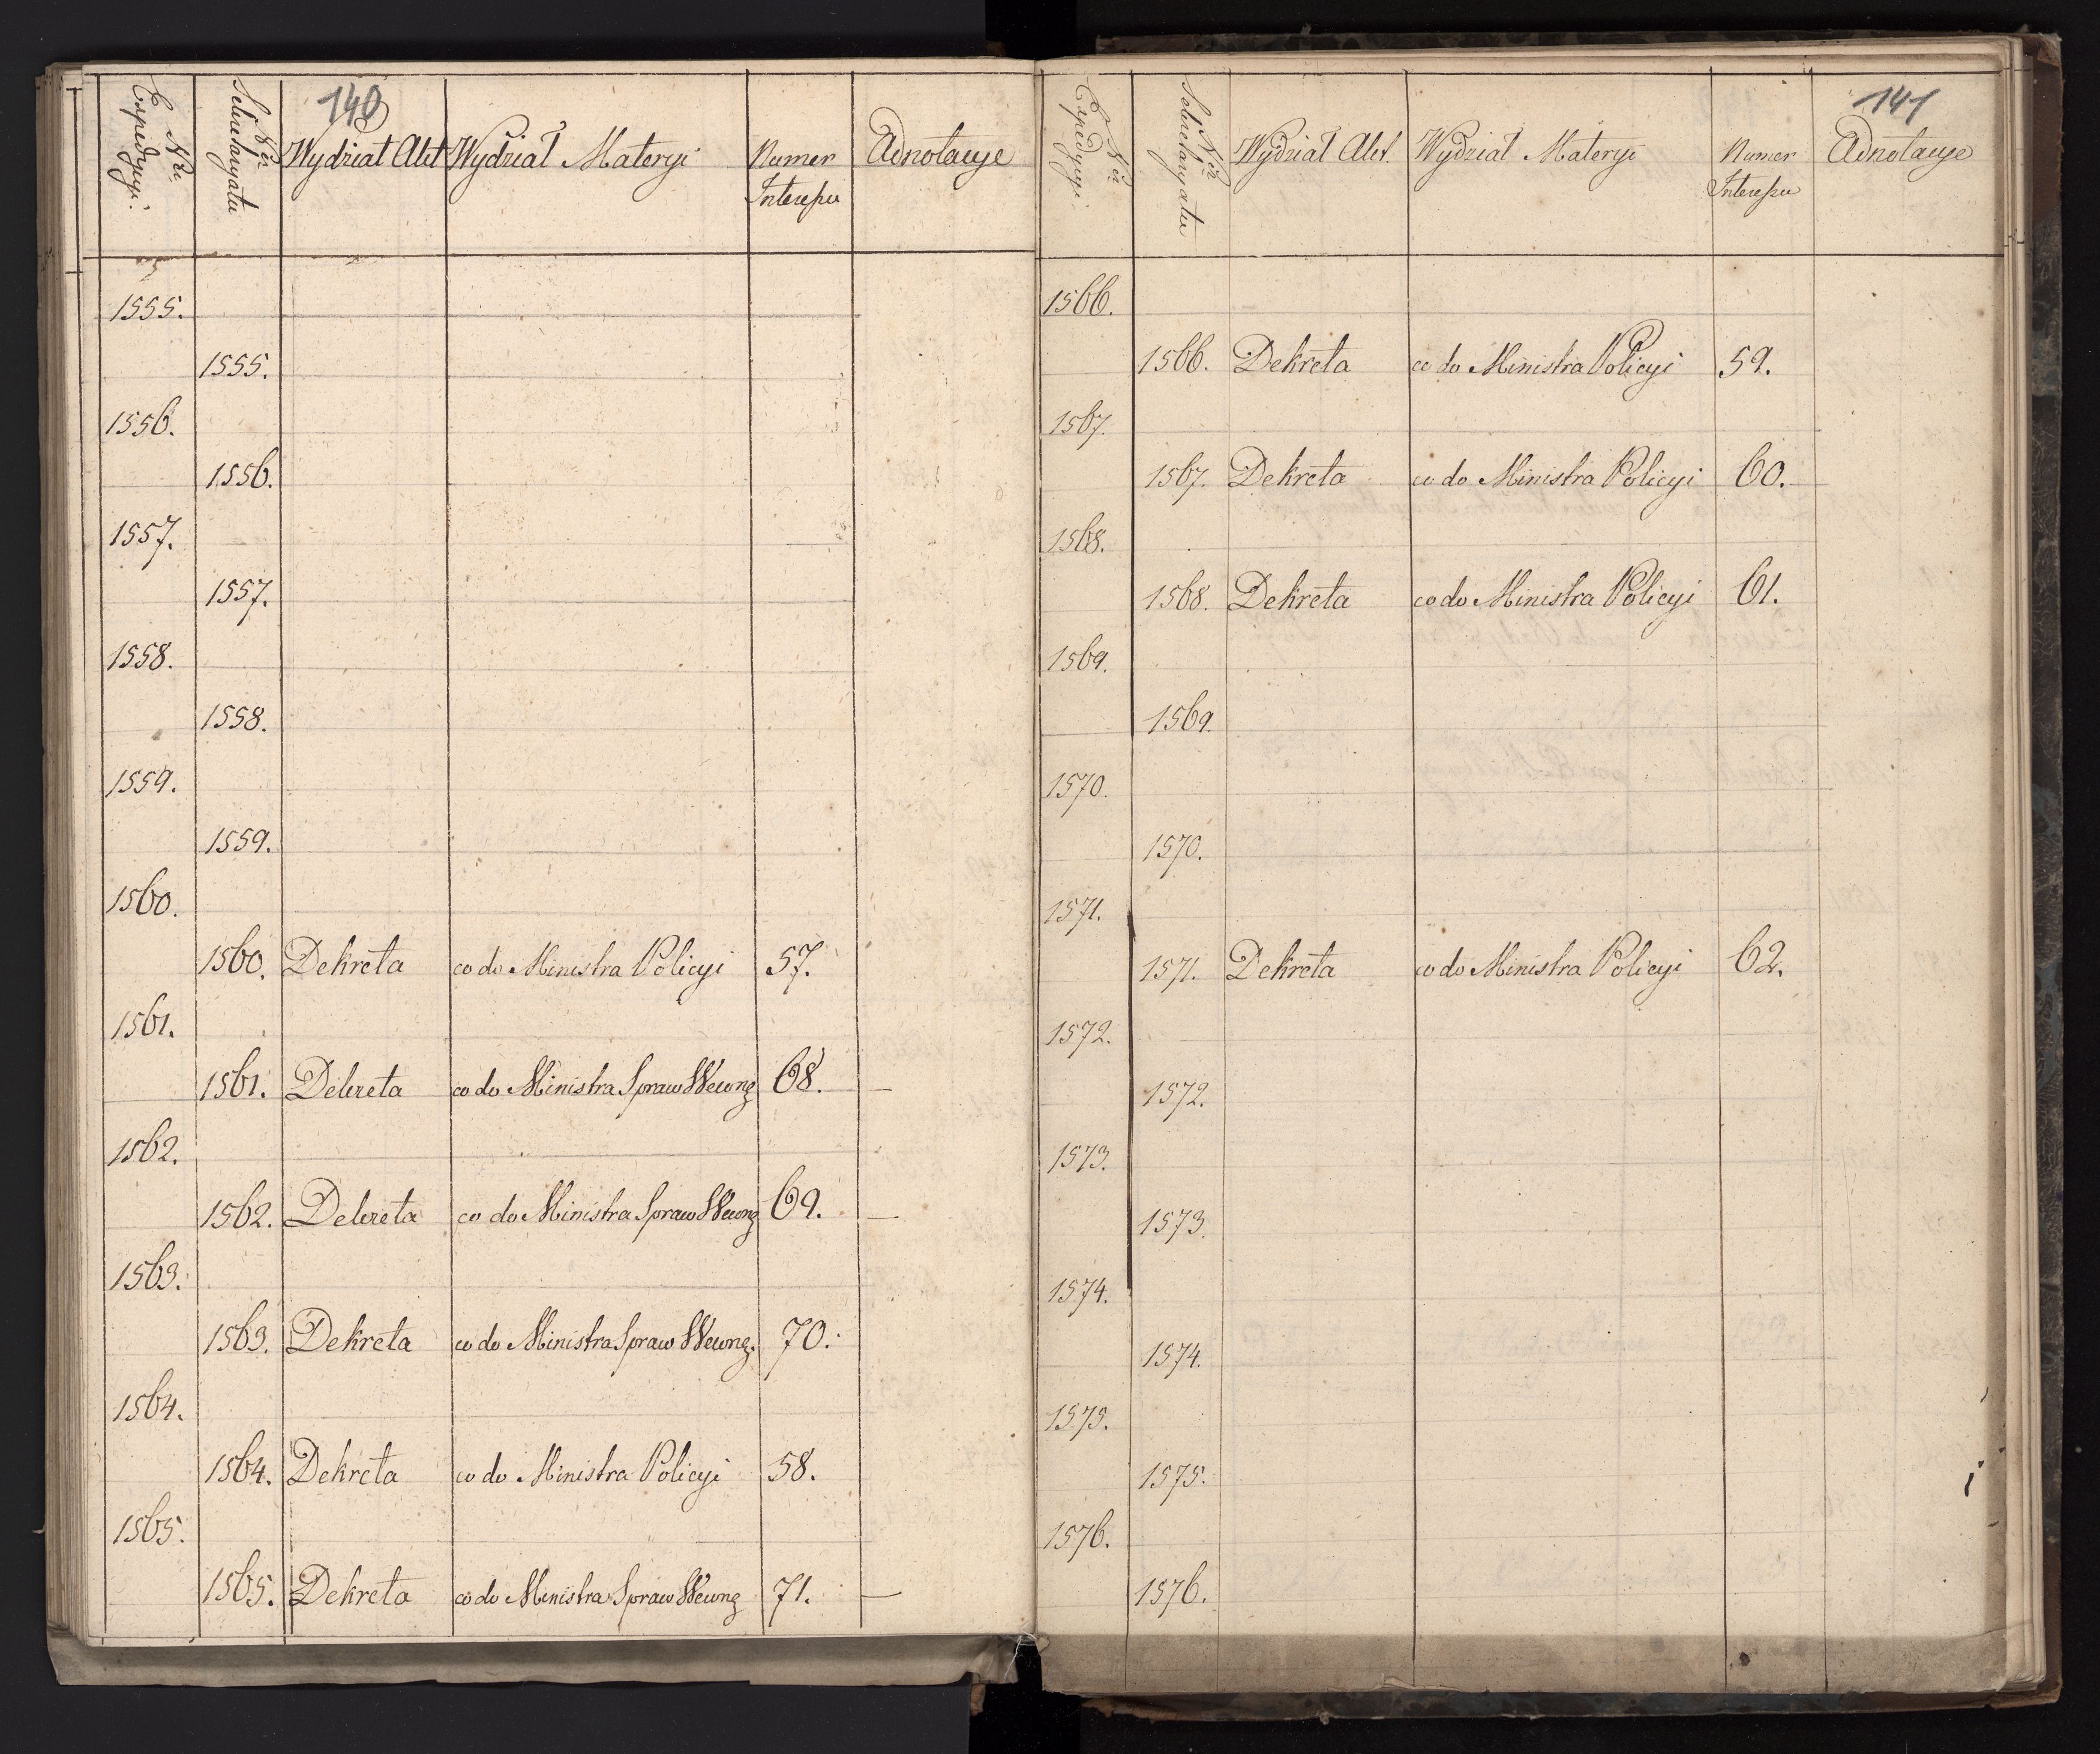 140
Nro Expedycyi.
Nro Sekretaryatu
Wydział Akt
Wydział Materyi
Numer Interessu
Adnotacye
1555.
1555.
1556.
1556.
1557.
1557.
1558.
1558.
1559.
1559.
1560.
1560. Dekreta co do Ministra Policyi 57.
1561.
1561. Dekreta co do Ministra Spraw Wewnę 68. —
1562.
1562. Dekreta co do Ministra Spraw Wewnę 69. —
1563.
1563. Dekreta co do Ministra Spraw Wewnę. 70.
1564.
1564. Dekreta co do Ministra Policyi 58.
1565.
1565. Dekreta co do Ministra Spraw Wewnę 71. —
141
Nro Expedycyi
Nro Sekretaryatu
Wydział Akt.
Wydział Materyi
Numer Interessu
Adnotacye
1566.
1566. Dekreta co do Ministra Policyi 59.
1567.
1567. Dekreta co do Ministra Policyi 60.
1568.
1568. Dekreta co do Ministra Policyi 61.
1569.
1569.
1570.
1570.
1571.
1571. Dekreta co do Ministra Policyi 62.
1572.
1572.
1573.
1573.
1574.
1574.
1575.
1575.
1576.
1576.